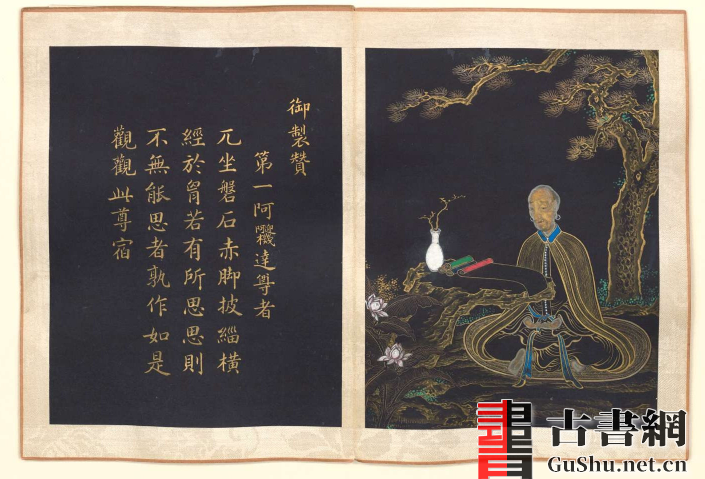 御製贊
第一阿達尊者
兀坐磐石赤脚披緇橫
經於胷若有所思思則
不無能思者孰作如是
觀觀此尊宿
書
古書網
GuShu.net.cn